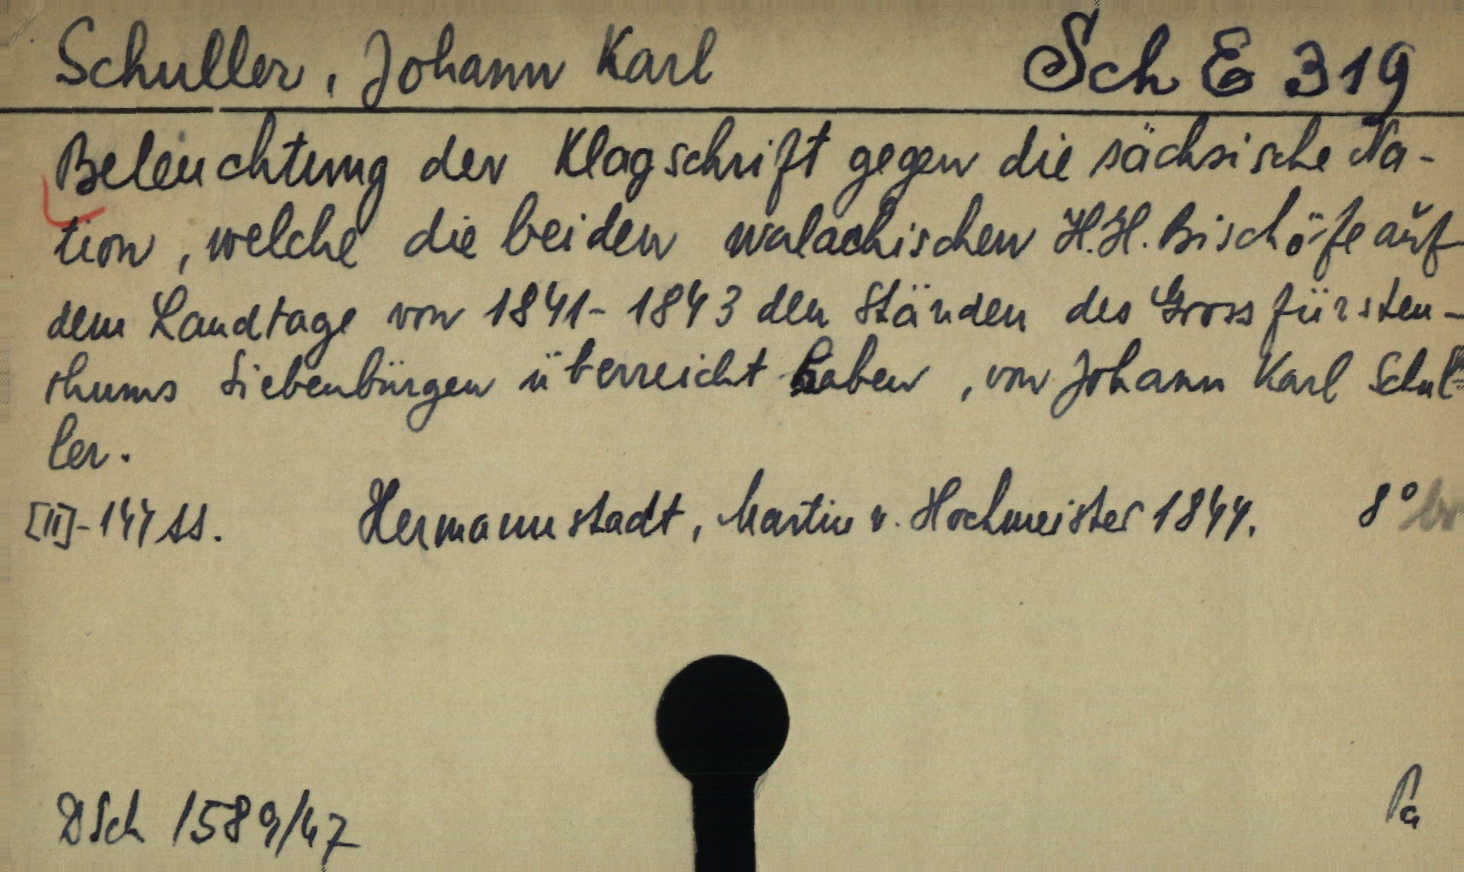 Schuller, Johann Karl Sch E 319
Beleuchtung der Klagschrift gegen die sächsische Na-
tion, welche die beiden walachischen H.H. Bischöfe auf
dem Landtage von 1841-1843 den Ständen des Grossfürsten-
thums Siebenbürgen überreicht haben, von Johann Karl Schul=
ler.
[II]-144 SS. Hermannstadt, Martin v. Hochmeister 1844. 8° br
DSch 1589/47 Pa